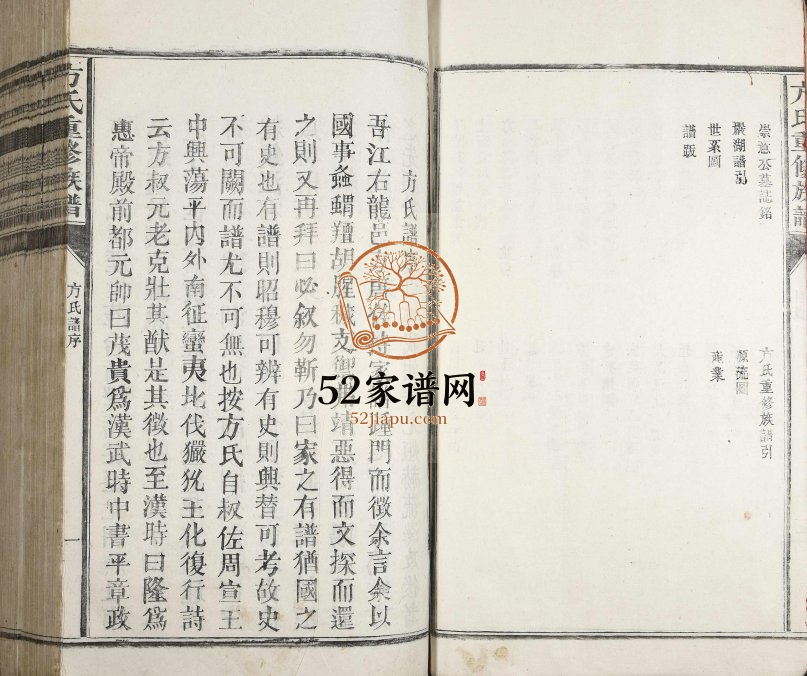 方氏重修族譜
崇
公墓誌銘
巖湖譜引
世系圖
譜跋
方氏重修族譜引
源流圖
方氏譜序
吾江右龍邑
門而徵余言余以
國事蝨蝟羶胡腥穢
靖惡得而文探而還
之則又再拜曰必敘勿靳乃曰家之有譜猶國之
有史也有譜則昭穆可辨有史則興替可考故史
不可闕而譜尤不可無也按方氏自叔佐周宣王
中興蕩平內外南征蠻夷北伐玁狁王化復行詩
云方叔元老克壯其猷是其徵也至漢時曰隆爲
惠帝殿前都元帥曰茂貴爲漢武時中書平章政
方氏重修族譜
方氏譜序
一
52家谱网
52jiapu.com